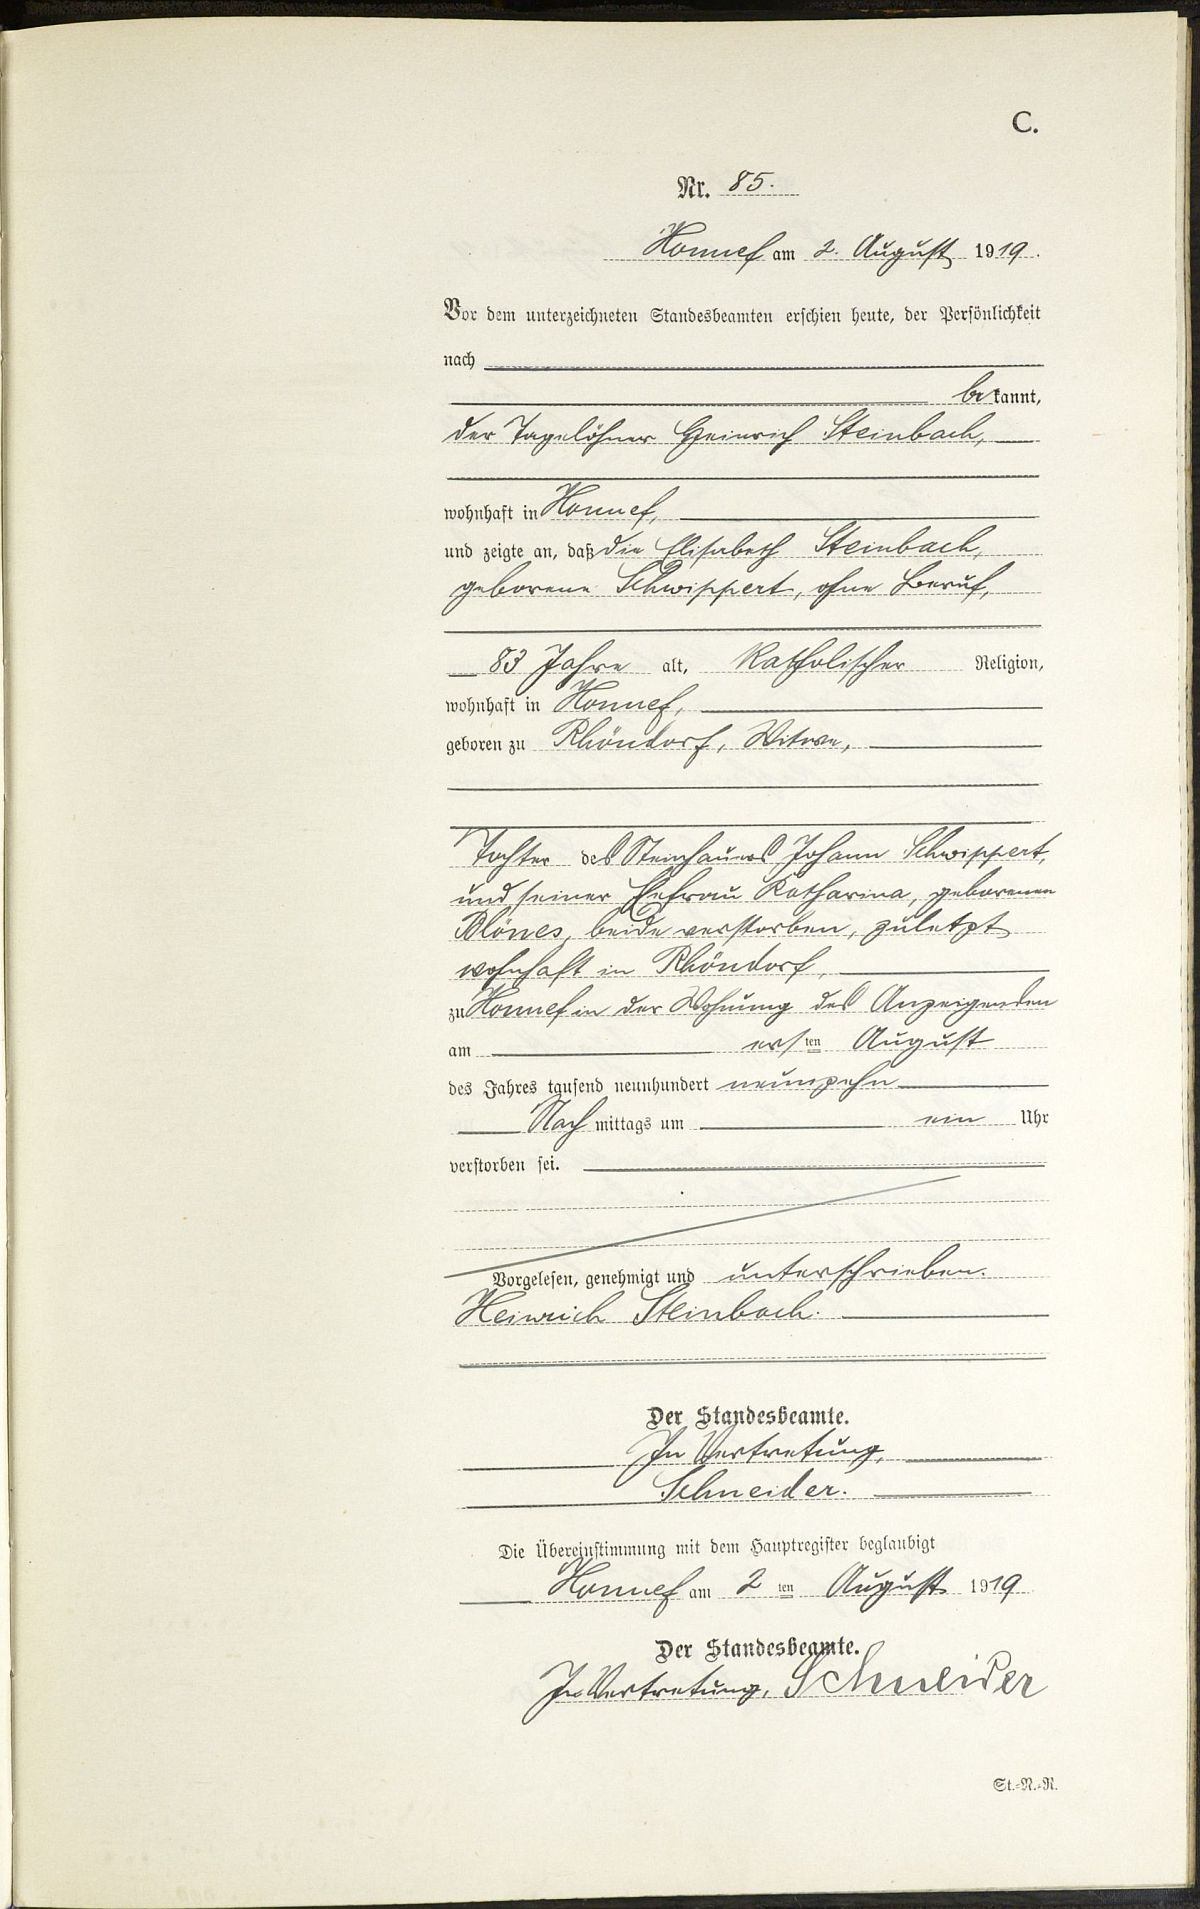 C.
Nr. 85.
Honnef am 2. August 1919.
Vor dem unterzeichneten Standesbeamten erschien heute, der Persönlichkeit
nach
bekannt,
der Tagelöhner Heinrich Steinbach,
wohnhaft in Honnef,
und zeigte an, daß die Elisabeth Steinbach,
geborene Schwippert, ohne Beruf,
83 Jahre alt, katholischer Religion,
wohnhaft in Honnef,
geboren zu Rhöndorf, Witwe,
Tochter des Steinhauers Johann Schwippert,
und seiner Ehefrau Katharina, geborenen
Blönes, beide verstorben, zuletzt
wohnhaft in Rhöndorf,
zu Honnef in der Wohnung des Anzeigenden
am ersten August
des Jahres tausend neunhundert neunzehn
Nachmittags um ein Uhr
verstorben sei.
Vorgelesen, genehmigt und unterschrieben.
Heinrich Steinbach.
Der Standesbeamte.
In Vertretung,
Schneider.
Die Übereinstimmung mit dem Hauptregister beglaubigt
Honnef am 2ten August 1919
Der Standesbeamte.
In Vertretung, Schneider
St.-N.-R.